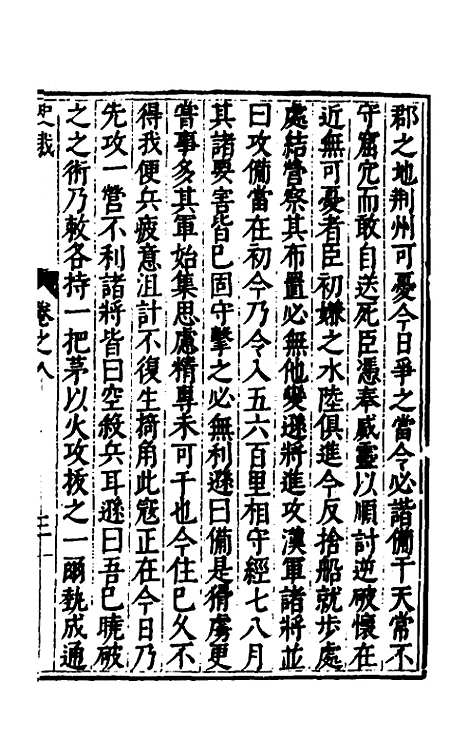 郡之地荆州可憂今日爭之當令必諧備干天常不
守窟穴而敢自送死臣憑奉威靈以順討逆破懷在
近無可憂者臣初嫌之水陸俱進今反捨船就步處
處結營察其布置必無他變遜將進攻漢軍諸將並
曰攻備當在初今乃令入五六百里相守經七八月
其諸要害皆已固守擊之必無利遜曰備是猾虜更
嘗事多其軍始集思慮精專未可干也今住已久不
得我便兵疲意沮計不復生掎角此寇正在今日乃
先攻一營不利諸將皆曰空殺兵耳遜曰吾已曉破
之之術乃敕各持一把茅以火攻拔之一爾埶成通
卷之八